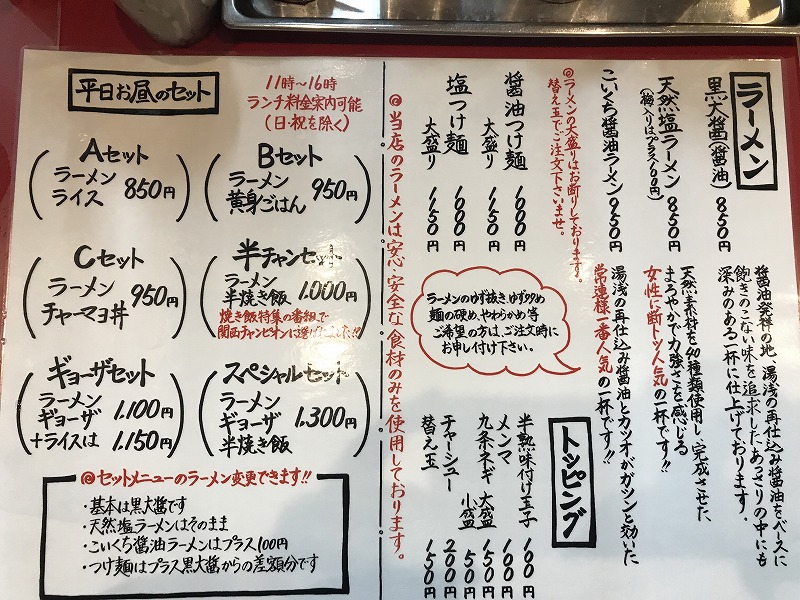 ラーメン
黒大醤(醤油) 850円
醤油発祥の地、湯浅の再仕込み醤油をベースに
飽きのこない味を追求したあっさりの中にも
深みのある一杯に仕上げております。
天然塩ラーメン 850円
(梅入りはプラス100円)
天然素材を40種類使用し、完成させた、
まろやかで力強さを感じる
女性に断トツ人気の一杯です!!
こいくち醤油ラーメン 950円
湯浅の再仕込み醤油とカツオがガツンと効いた
常連様一番人気の一杯です!!
◎ラーメンの大盛りはお断りしております。
替え玉でご注文下さいませ。
醤油つけ麺 1000円
大盛り 1150円
塩つけ麺 1000円
大盛り 1150円
ラーメンのゆず抜き、ゆず多め
麺の硬め、やわらかめ等
ご希望の方は、ご注文時に
お申し付け下さい。
トッピング
半熟味付け玉子 100円
メンマ 100円
九条ネギ 大盛 150円
小盛 50円
チャーシュー 200円
替え玉 150円
◎当店のラーメンは安心・安全な食材のみを使用しております。
平日お昼のセット
11時〜16時
ランチ料金案内可能
(日・祝を除く)
Aセット
ラーメン
ライス 850円
Bセット
ラーメン
黄身ごはん 950円
Cセット
ラーメン
チャーマヨ丼 950円
半チャンセット
ラーメン
半焼き飯 1.000円
焼き飯特集の番組で
関西チャンピオンに選ばれました!!?
ギョーザセット
ラーメン
ギョーザ 1.100円
+ライスは 1.150円
スペシャルセット
ラーメン
ギョーザ
半焼き飯 1.300円
◎セットメニューのラーメン変更できます!!
・基本は黒大醤です
・天然塩ラーメンはそのまま
・こいくち醤油ラーメンはプラス100円
・つけ麺はプラス黒大醤からの差額分です